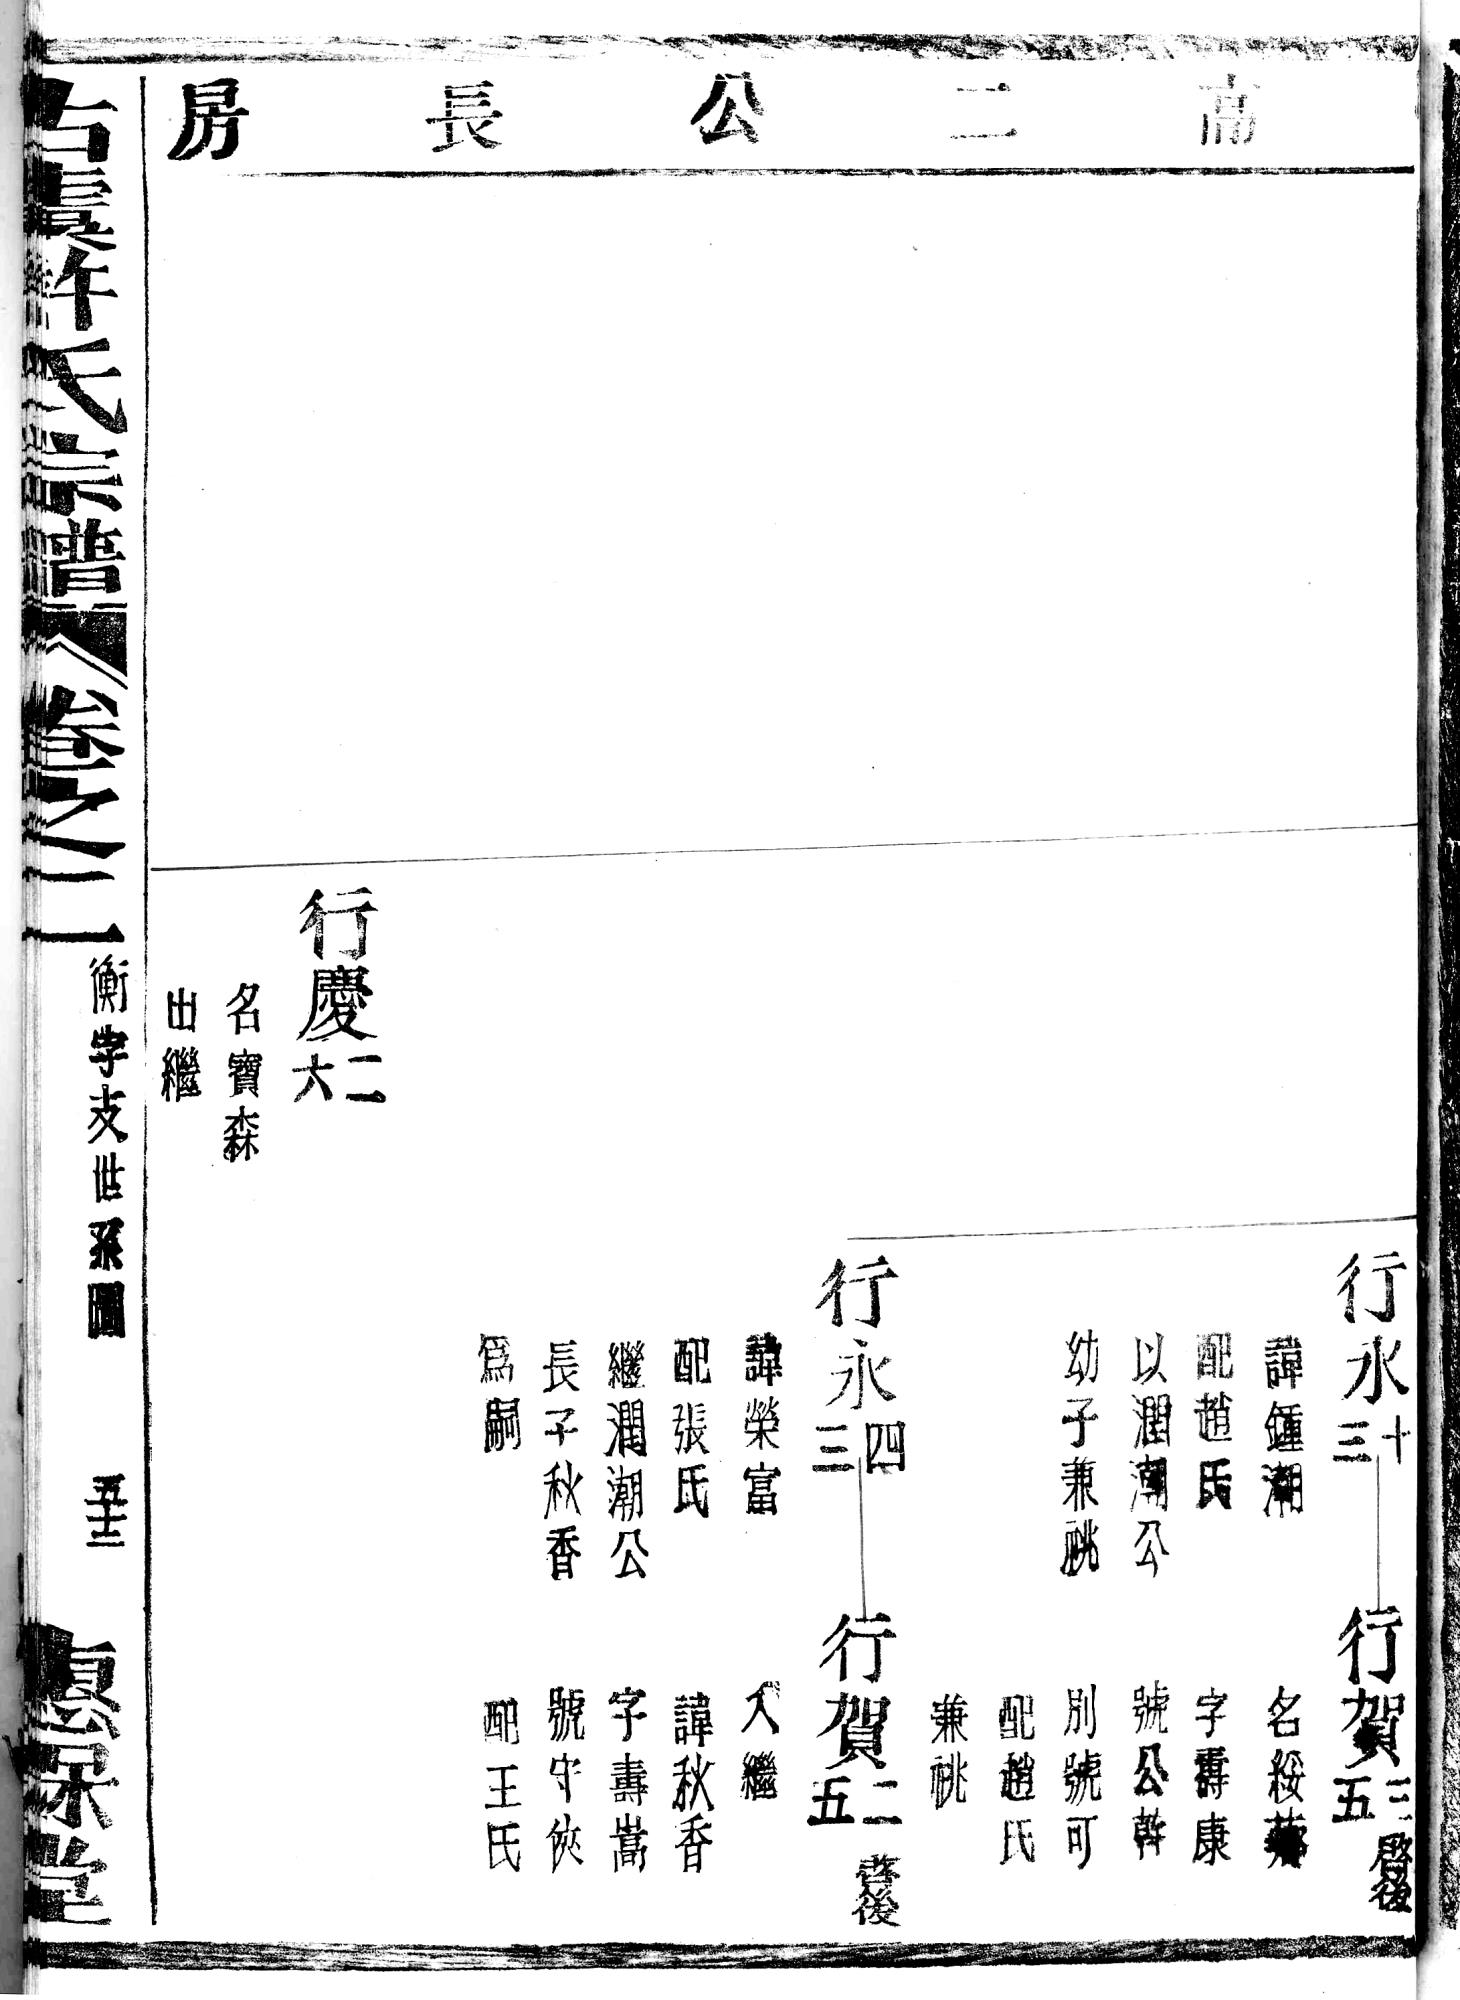 高二公長房
行永十三
諱鍾潮
配趙氏
以潤潮公
幼子兼祧
行賀三五
啓後
名綏
字壽康
號公幹
別號可
配趙氏
兼祧
行永四三
諱榮富
配張氏
繼潤潮公
長子秋香
為嗣
行賀二五
啓後
入繼
諱秋香
字壽嵩
號守俠
配王氏
行慶二六
名寶森
出繼
古虞許氏宗譜
卷之二
衡字支世系圖
五十三
惠保堂